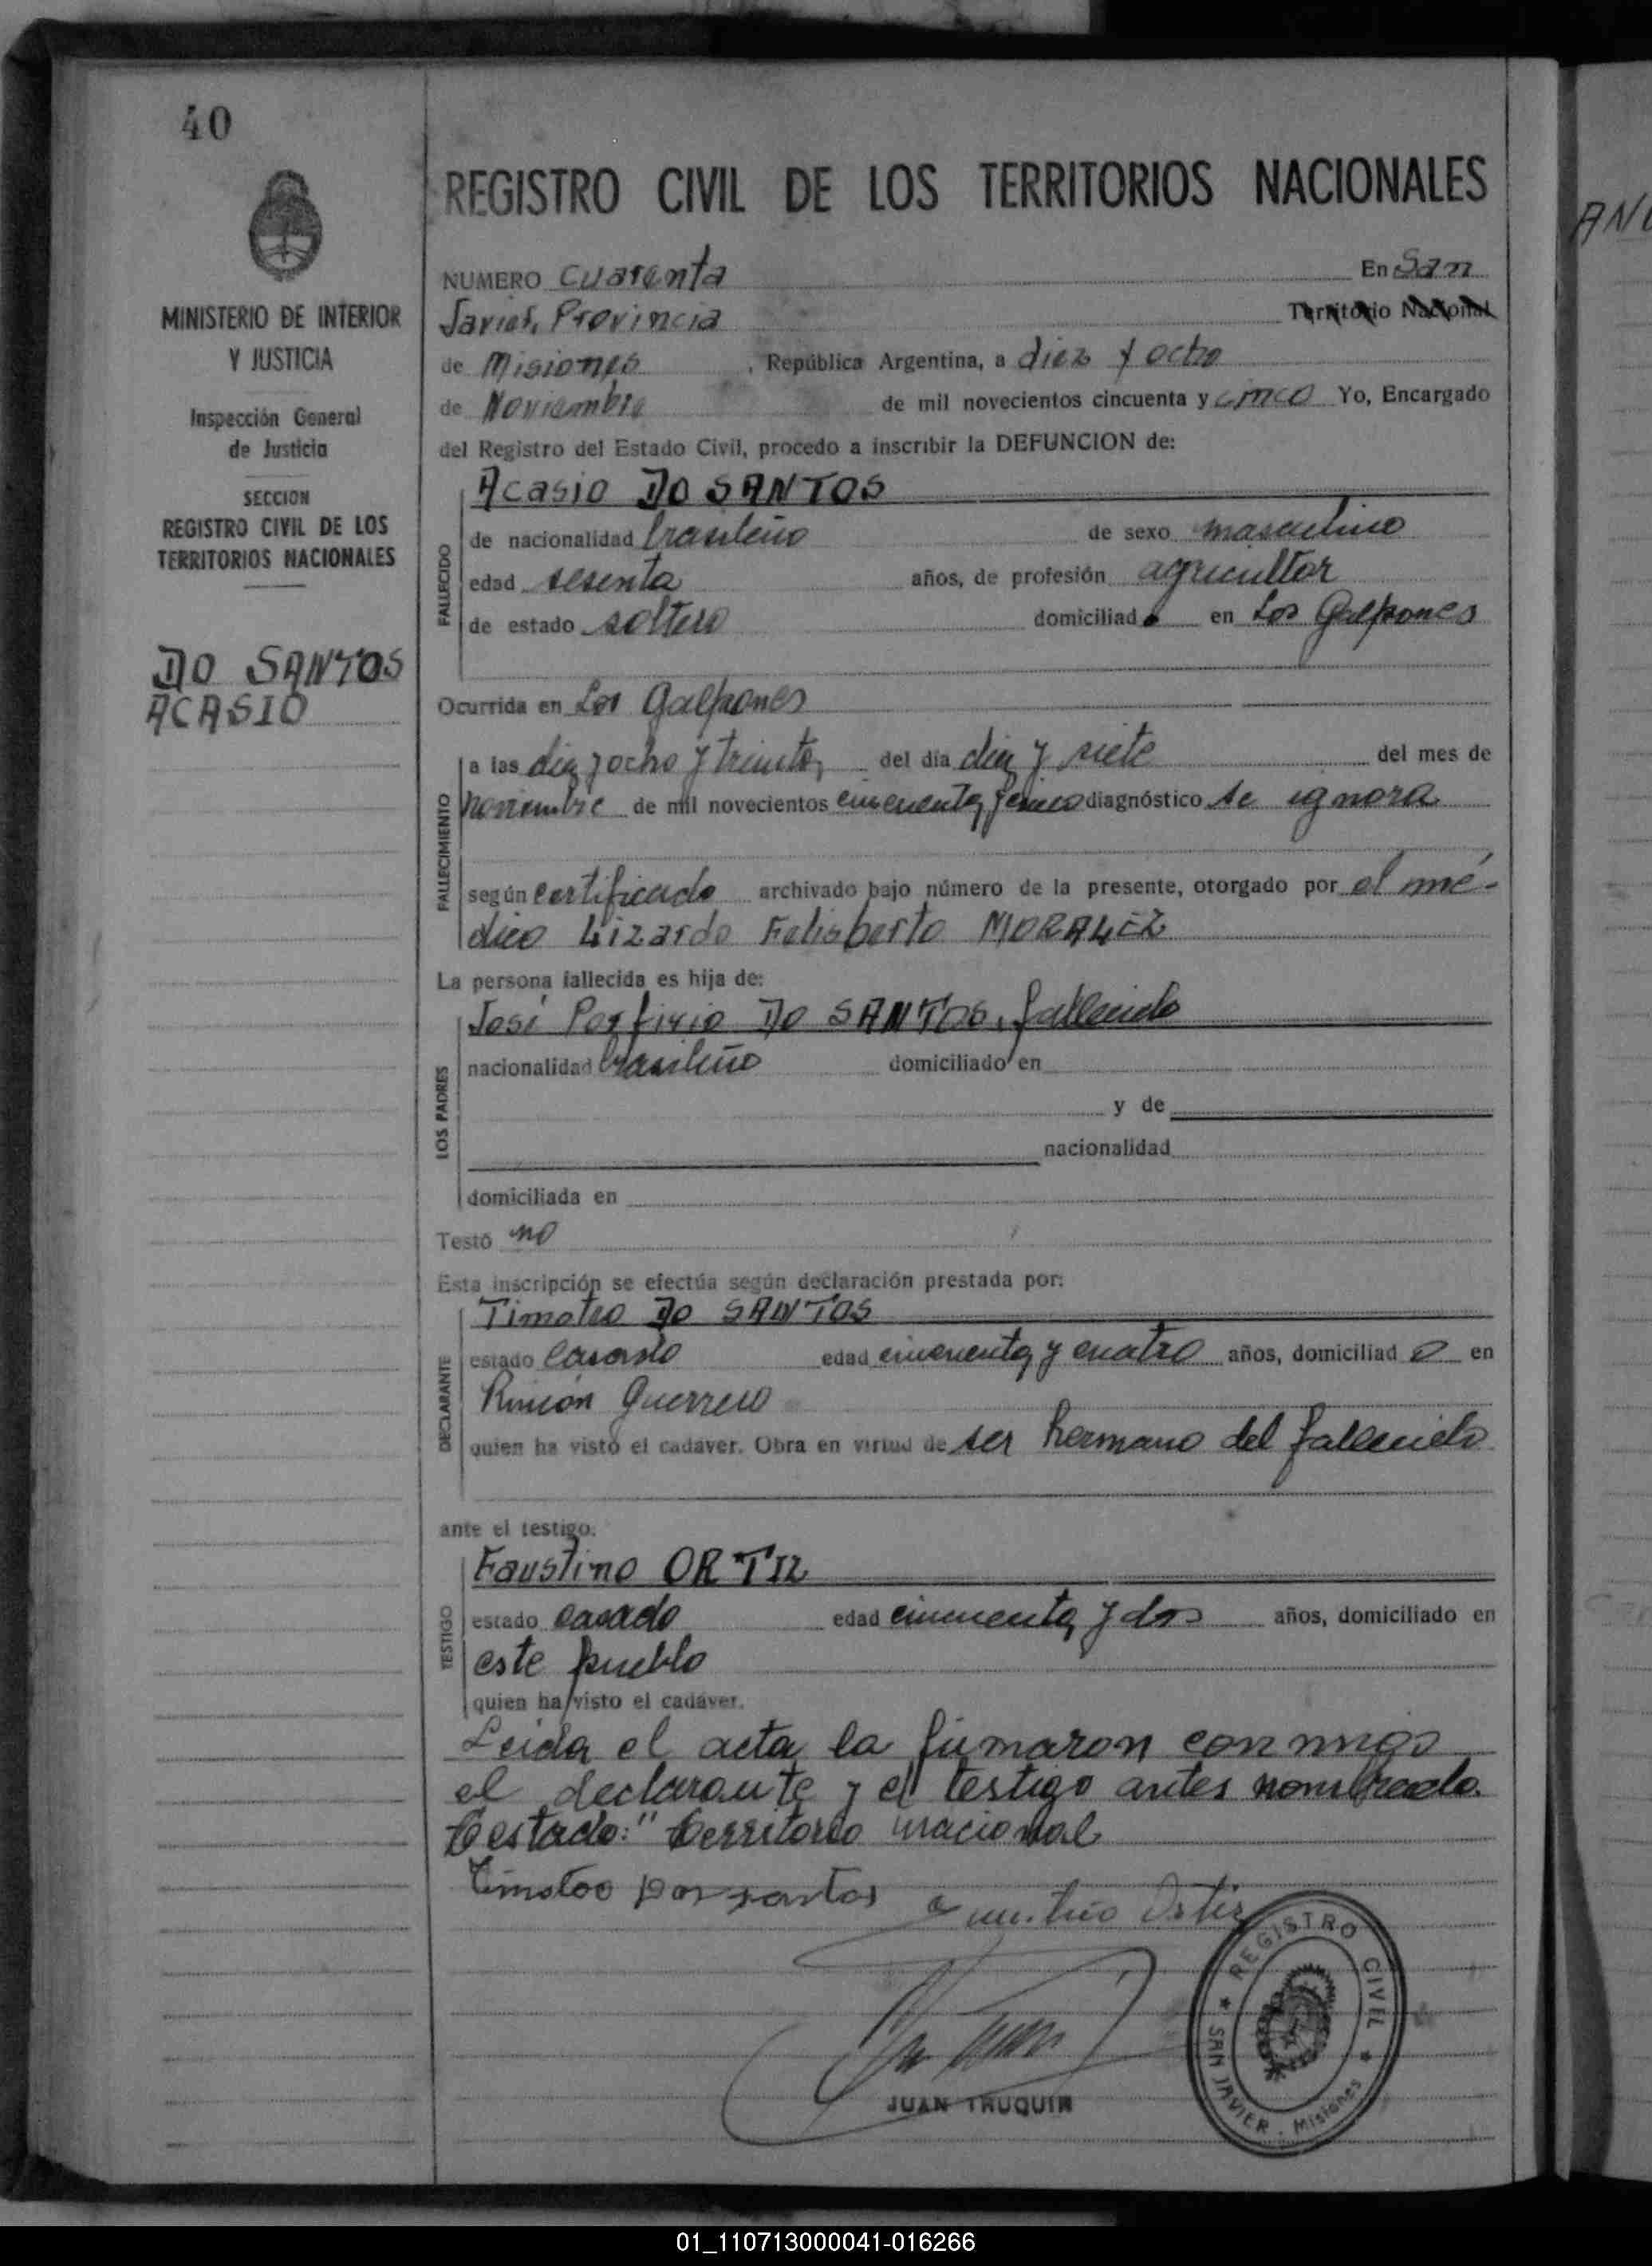 40
MINISTERIO DE INTERIOR
Y JUSTICIA
Inspección General
de Justicia
SECCION
REGISTRO CIVIL DE LOS
TERRITORIOS NACIONALES
DO SANTOS
ACASIO
REGISTRO CIVIL DE LOS TERRITORIOS NACIONALES
NUMERO cuarenta En San
Javier, Provincia Territorio Nacional
de Misiones, República Argentina, a diez y ocho
de Noviembre de mil novecientos cincuenta y cinco Yo, Encargado
del Registro del Estado Civil, procedo a inscribir la DEFUNCION de:
Acasio DO SANTOS
FALLECIDO
de nacionalidad brasileño de sexo masculino
edad sesenta años, de profesión agricultor
de estado soltero domiciliado en Los Galpones
Ocurrida en Los Galpones
FALLECIMIENTO
a las diez y ocho y treinta, del día diez y siete del mes de
noviembre de mil novecientos cincuenta y cinco diagnóstico se ignora
según certificado archivado bajo número de la presente, otorgado por el mé-
dico Lizardo Felisberto MORALEZ
La persona fallecida es hija de:
LOS PADRES
José Porfirio DO SANTOS, fallecido
nacionalidad brasileño domiciliado en
y de
nacionalidad
domiciliada en
Testó no
Esta inscripción se efectúa según declaración prestada por:
DECLARANTE
Timoteo DO SANTOS
estado casado edad cincuenta y cuatro años, domiciliad o en
Rincón Guerrero
quien ha visto el cadáver. Obra en virtud de ser hermano del fallecido
ante el testigo:
TESTIGO
Faustino ORTIZ
estado casado edad cincuenta y dos años, domiciliado en
este pueblo
quien ha visto el cadáver.
Leida el acta la firmaron conmigo
el declarante y el testigo antes nombrado.
Testado: "Territorio nacional
Timoteo Dos santos
Ortiz
JUAN TRUQUIN
REGISTRO CIVIL
SAN JAVIER - Misiones
ANG
01_110713000041-016266